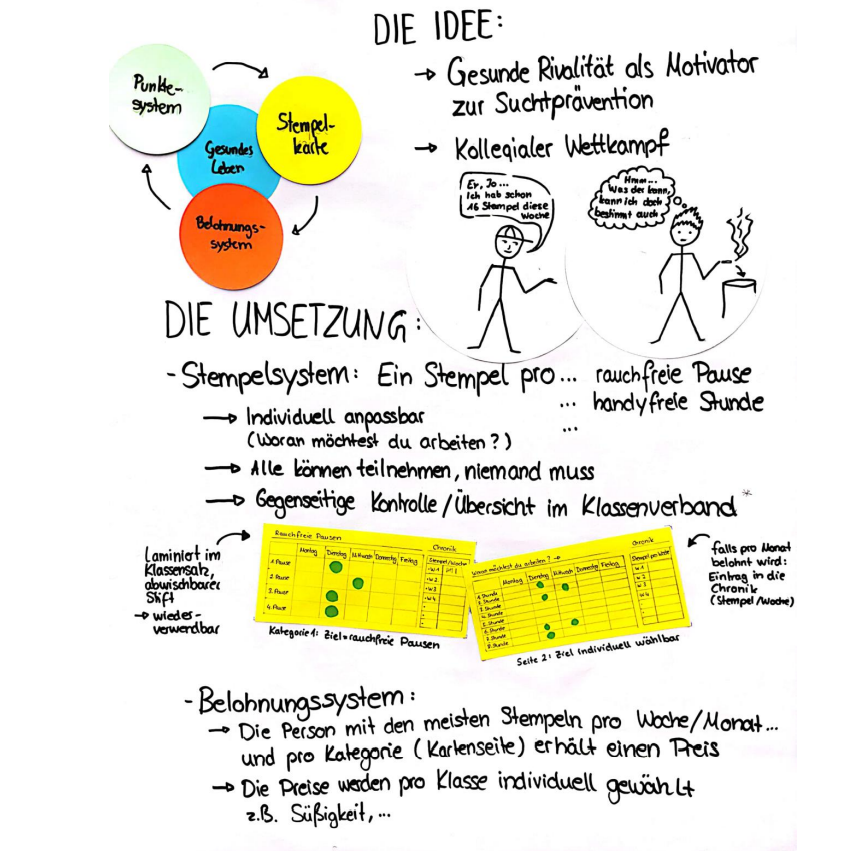 DIE IDEE:
→ Gesunde Rivalität als Motivator
zur Suchtprävention
→ Kollegialer Wettkampf
Punkte-
system
Stempel-
karte
Gesundes
Leben
Belohnungs-
system
Ey, Jo...
Ich hab schon
16 Stempel diese
Woche
Hmm...
Was der kann,
kann ich doch
bestimmt auch
DIE UMSETZUNG:
- Stempelsystem: Ein Stempel pro... rauchfreie Pause
... handyfreie Stunde
...
→ Individuell anpassbar
(Woran möchtest du arbeiten?)
→ Alle können teilnehmen, niemand muss
→ Gegenseitige Kontrolle/Übersicht im Klassenverband*
Laminiert im
Klassensatz,
abwischbarer
Stift
→ wieder-
verwendbar
Rauchfreie Pausen
Chronik
Montag Dienstag Mittwoch Donnerstag Freitag Stempel/Woche
1. Pause
2. Pause
3. Pause
4. Pause
W1
W2
W3
W4
Kategorie 1: Ziel = rauchfreie Pausen
Woran möchtest du arbeiten? →
Chronik
Montag Dienstag Mittwoch Donnerstag Freitag Stempel pro Woche
1. Stunde
2. Stunde
3. Stunde
4. Stunde
5. Stunde
6. Stunde
7. Stunde
8. Stunde
W1
W2
W3
W4
Seite 2: Ziel individuell wählbar
falls pro Monat
belohnt wird:
Eintrag in die
Chronik
(Stempel/Woche)
- Belohnungssystem:
→ Die Person mit den meisten Stempeln pro Woche/Monat...
und pro Kategorie (Kartenseite) erhält einen Preis
→ Die Preise werden pro Klasse individuell gewählt
z.B. Süßigkeit,...